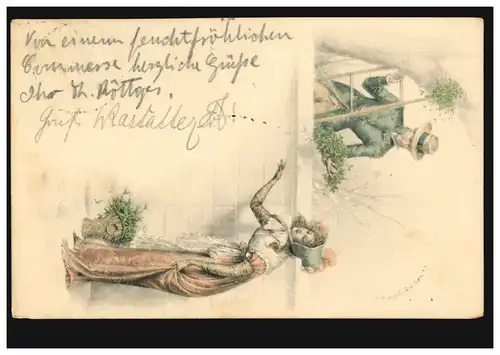 Von einem feuchtfröhlichen
Commerse herzliche Grüße
Ihr Th. Röttges.
Gruß Wastatter